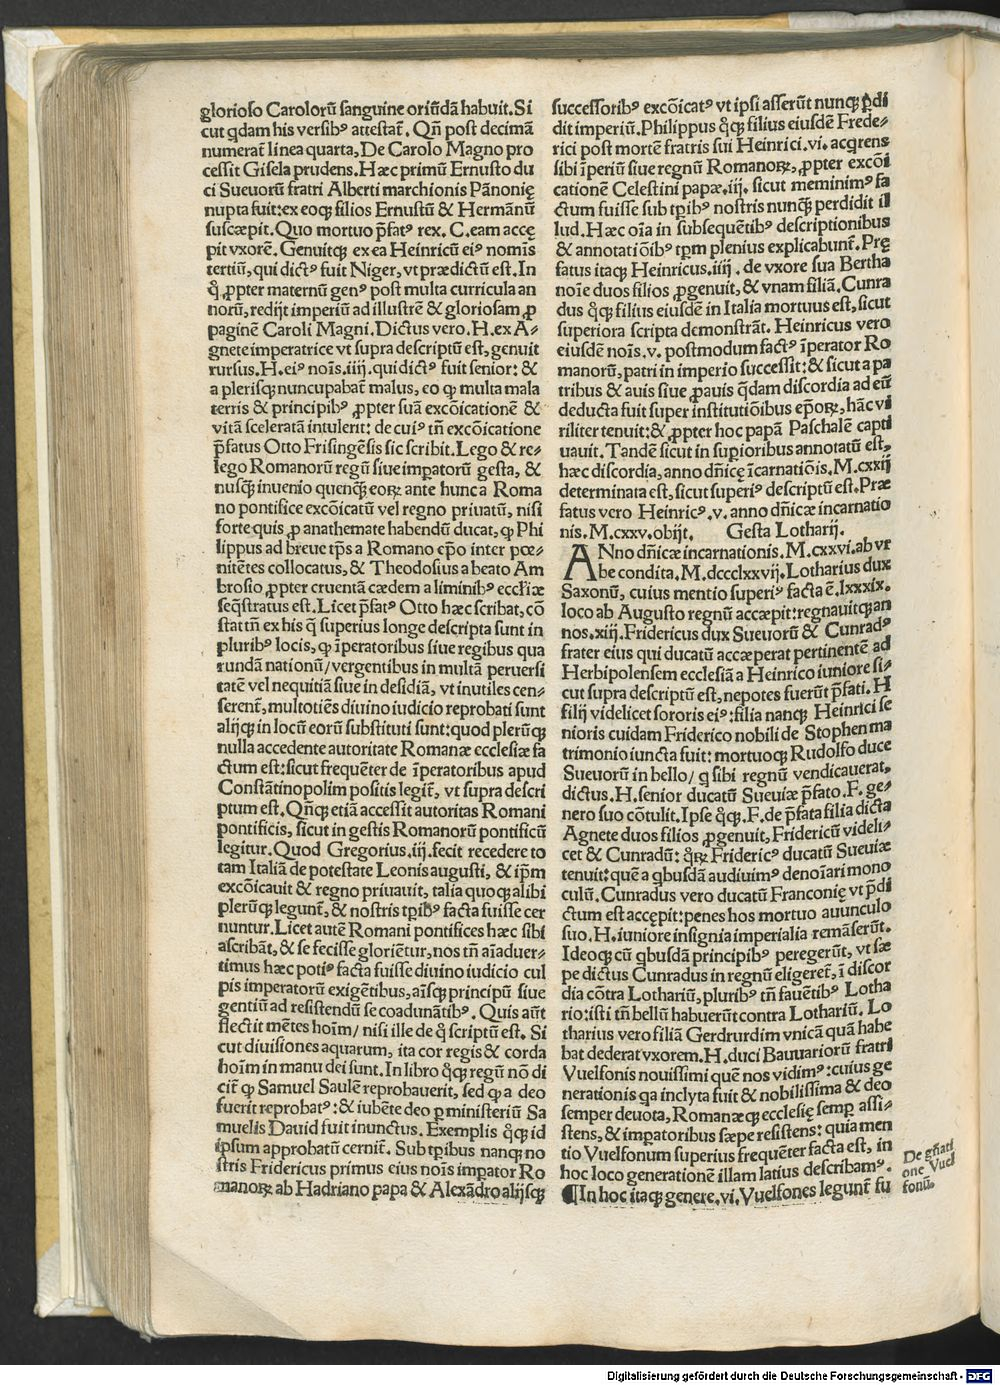 glorioso Carolorū sanguine oriūdā habuit. Si
cut qdam his versibꝰ attestat̄. Qn̄ post decimā
numerat̄ linea quarta, De Carolo Magno pro
cessit Gisela prudens. Hæc primū Ernusto du
ci Sueuorū fratri Alberti marchionis Pānonię
nupta fuit: ex eoqꝫ filios Ernustū & Hermānū
suscæpit. Quo mortuo p̄fatꝰ rex. C. eam accę
pit vxorē. Genuitqꝫ ex ea Heinricū eiꝰ nomīs
tertiū, qui dictꝰ fuit Niger, vt prædictū est. In
q̊ ꝓpter maternū genꝰ post multa curricula an
norū, redijt imperiū ad illustrē & gloriosam ꝓ
paginē Caroli Magni. Dictus vero. H. ex A⸗
gnete imperatrice vt supra descriptū est, genuit
rursus. H. eiꝰ noīs. iiij. qui dictꝰ fuit senior: &
a plerisqꝫ nuncupabat̄ malus, eo ꝙ multa mala
terris & principibꝰ ꝓpter suā excōicationē &
vitā sceleratā intulerit: de cuiꝰ tn̄ excōicatione
p̄fatus Otto Frisingēsis sic scribit. Lego & re⸗
lego Romanorū regū siue imꝑatorū gesta, &
nusq̄ꝫ inuenio quenq̄ꝫ eoꝝ ante hunc a Roma
no pontifice excōicatū vel regno priuatū, nisi
forte quis ꝓ anathemate habendū ducat, ꝙ Phi
lippus ad breue tp̄s a Romano ep̄o inter pœ⸗
nitētes collocatus, & Theodosius a beato Am
brosio ꝓpter cruentā cædem a liminibꝰ eccl̄iæ
seq̄stratus est. Licet p̄fatꝰ Otto hæc scribat, cō
stat tn̄ ex his q̄ superius longe descripta sunt in
pluribꝰ locis, ꝙ īperatoribus siue regibus qua
rundā nationū/ vergentibus in multā peruersi
tatē vel nequitiā siue in desidiā, vt inutiles cen⸗
serent̄, multotiēs diuino iudicio reprobati sunt
alijqꝫ in locū eorū substituti sunt: quod plerūqꝫ
nulla accedente autoritate Romanæ ecclesiæ fa
ctum est: sicut frequēter de īperatoribus apud
Constātinopolim positis legit̄, vt supra descri
ptum est. Qn̄qꝫ etiā accessit autoritas Romani
pontificis, sicut in gestis Romanorū pontificū
legitur. Quod Gregorius. iij. fecit recedere to
tam Italiā de potestate Leonis augusti, & ip̄m
excōicauit & regno priuauit, talia quoqꝫ alibi
plerūqꝫ legunt̄, & nostris tp̄ibꝰ facta fuisse cer
nuntur. Licet autē Romani pontifices hæc sibi
ascribāt, & se fecisse gloriētur, nos tn̄ aīaduer⸗
timus hæc potiꝰ facta fuisse diuino iudicio cul
pis imperatorū exigētibus, aīsqꝫ principū siue
gentiū ad resistendū se coadunātibꝰ. Quis aūt
flectit mētes hoīm/ nisi ille de q̊ scriptū est. Si
cut diuisiones aquarum, ita cor regis & corda
hoīm in manu dei sunt. In libro q̊qꝫ regū nō di
cit̄ ꝙ Samuel Saulē reprobauerit, sed ꝙ a deo
fuerit reprobatꝰ: & iubēte deo ꝑ ministeriū Sa
muelis Dauid fuit inunctus. Exemplis q̊qꝫ id
ipsum approbatū cernit̄. Sub tp̄ibus nanqꝫ no
stris Fridericus primus eius noīs imꝑator Ro
manoꝝ ab Hadriano papa & Alexādro alijsqꝫ
successoribꝰ excōicatꝰ vt ipsi asserūt nunq̄ꝫ ꝑdi
dit imperiū. Philippus q̊qꝫ filius eiusdē Frede⸗
rici post mortē fratris sui Heinrici. vi. acqrens
sibi īperiū siue regnū Romanoꝝ, ꝓpter excōi
cationē Celestini papæ. iij. sicut meminimꝰ fa
ctum fuisse sub tp̄ibꝰ nostris nunq̄ꝫ perdidit il
lud. Hæc oīa in subsequētibꝰ descriptionibus
& annotatiōibꝰ tp̄m plenius explicabunt̄. Prę
fatus itaqꝫ Heinricus. iiij. de vxore sua Bertha
noīe duos filios ꝓgenuit, & vnam filiā. Cunra
dus q̊qꝫ filius eiusdē in Italia mortuus est, sicut
superiora scripta demonstrāt. Heinricus vero
eiusdē noīs. v. postmodum factꝰ īperator Ro
manorū, patri in imperio successit: & sicut a pa
tribus & auis siue ꝓauis q̄dam discordia ad eū
deducta fuit super institutiōibus ep̄oꝝ, hāc vi
riliter tenuit: & ꝓpter hoc papā Paschalē capti
uauit. Tandē sicut in suꝑioribus annotatū est,
hæc discordia, anno dn̄icę īcarnatiōis. M. cxxij
determinata est, sicut superiꝰ descriptū est. Præ
fatus vero Heinricꝰ. v. anno dn̄icæ incarnatio
nis. M. cxxv. obijt.      Gesta Lotharij.
ANno dn̄icæ incarnationis. M. cxxvi. ab vr
be condita. M. dccclxxvij. Lotharius dux
Saxonū, cuius mentio superiꝰ facta ē. lxxxix.
loco ab Augusto regnū accæpit: regnauitqꝫ an
nos. xiij. Fridericus dux Sueuorū & Cunradꝰ
frater eius qui ducatū accæperat pertinentē ad
Herbipolensem ecclesiā a Heinrico iuniore si⸗
cut supra descriptū est, nepotes fuerūt p̄fati. H
filij videlicet sororis eiꝰ: filia nanqꝫ Heinrici se
nioris cuidam Friderico nobili de Stophen ma
trimonio iuncta fuit: mortuoqꝫ Rudolfo duce
Sueuorū in bello/ q sibi regnū vendicauerat,
dictus. H. senior ducatū Sueuiæ p̄fato. F. ge⸗
nero suo cōtulit. Ipse q̊qꝫ. F. de p̄fata filia dicta
Agnete duos filios ꝓgenuit, Fridericū videli⸗
cet & Cunradū: q̊ꝝ Fridericꝰ ducatū Sueuiæ
tenuit: quē a qbusdā audiuimꝰ denoīari mono
culū. Cunradus vero ducatū Franconię vt p̄di
ctum est accępit: penes hos mortuo auunculo
suo. H. iuniore insignia imperialia remāserūt.
Ideoqꝫ cū qbusdā principibꝰ peregerūt, vt sæ
pe dictus Cunradus in regnū eligeret̄, ī discor
dia cōtra Lothariū, pluribꝰ tn̄ fauētibꝰ Lotha
rio: isti tn̄ bellū habuerūt contra Lothariū. Lo
tharius vero filiā Gerdrurdim vnicā quā habe
bat dederat vxorem. H. duci Bauuariorū fratri
Vuelfonis nouissimi quē nos vidimꝰ: cuius ge
nerationis qa inclyta fuit & nobilissima & deo
semper deuota, Romanæqꝫ ecclesię semꝑ assi⸗
stens, & imꝑatoribus sæpe resistens: quia men
tio Vuelfonum superius frequēter facta est, in
hoc loco generationē illam latius describamꝰ.
¶In hoc itaqꝫ genere. vi. Vuelfones legunt̄ fu
De gn̄ati
one Vuel
fonū.
Digitalisierung gefördert durch die Deutsche Forschungsgemeinschaft - DFG